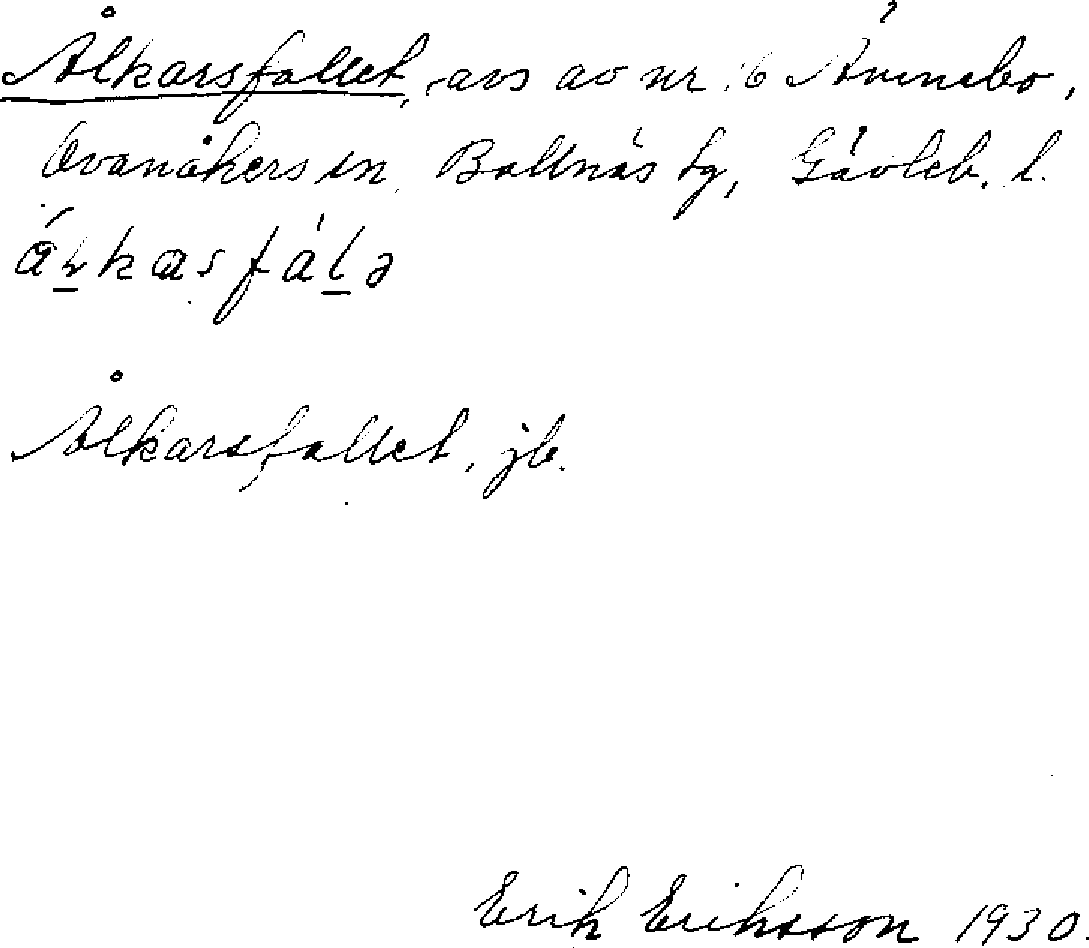 Ålkarsfallet, avs av nr 6 Ämnebo,
Ovanåkers sn, Bollnäs tg, Gävleb. l.
Ålkarsfallet, jb.
Erik Eriksson 1930.